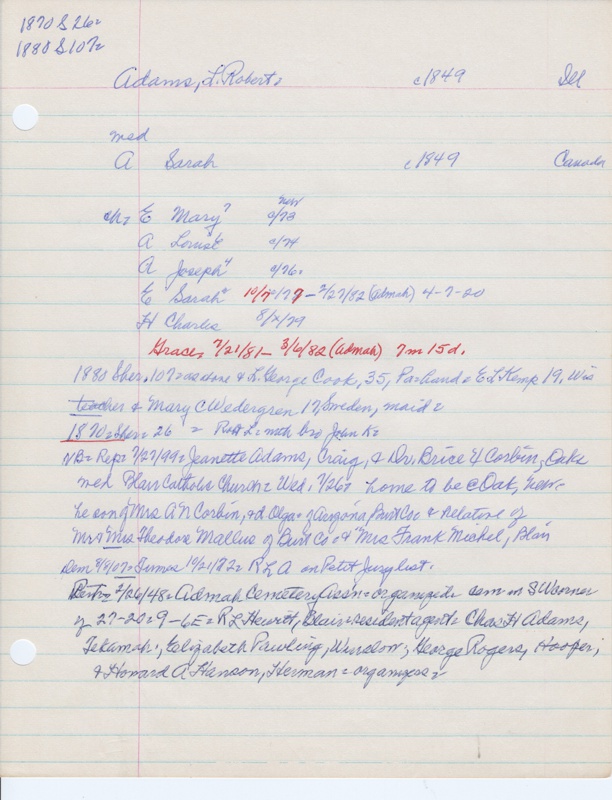 1870 S 26=
1880 S 107=
Adams, L. Robert= c1849 Ill
med
A Sarah c1849 Canada
ch= E Mary 7 c/73 Nev
A Louise 6 c/74
A Joseph 4 c/76=
E Sarah 10/ /77 - 2/27/82 (Admah) 4-7-20
H Charles 8/x/79
Grace, 7/21/81 - 3/6/82 (Admah) 7m 15d.
1880 Sher. 107= as above & L. George Cook, 35, Pa= hand & E L Kemp 19, Wis
teacher & Mary C Wedergren 17, Sweden, maid=
1870= Sher= 26 = Robt L= with bro John K=
NB= Rep= 7/27/99= Jeanette Adams, Craig, & Dr. Brice H Corbin, Oakd
wed Blair Catholic Church= Wed. 7/26= home to be @ Oak, New-
he son of Mrs A N Corbin, & d Olga= of Arizona, Burt Co= & Relative of
Mr & Mrs Theodore Mallus of Burt Co= & Mrs Frank Michel, Blair
Dem Times 10/21/82= R L A on Petit Jury list.
2/26/48= Admah Cemetery Assn= organized= cem on S W corner
of 27-20=9-6E= R L Hewitt, Blair= resident agent= Chas H Adams,
Tekamah=, Elizabeth Pawling, Winslow, George Rogers, Hooper,
& Howard A Hanson, Herman= organizers=